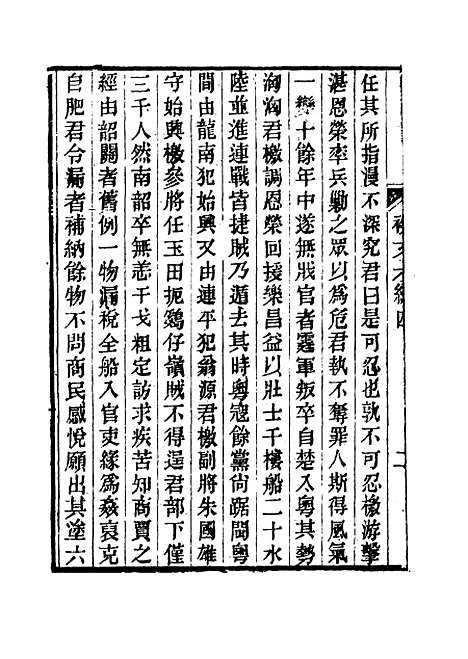 任其所指漫不深究君曰是可忍也孰不可忍檄游擊
湛恩榮率兵勦之眾以爲危君執不奪罪人斯得風氣
一變十餘年中遂無戕官者霆軍叛卒自楚入粵其勢
洶洶君檄調恩榮回援樂昌益以壯士千樓船二十水
陸並進連戰皆捷賊乃遁去其時粵寇餘黨尚踞閩粵
間由龍南犯始興又由連平犯翁源君檄副將朱國雄
守始興檄參將任玉田扼鷄仔嶺賊不得逞君部下僅
三千人然南韶卒無恙干戈粗定訪求疾苦知商賈之
經由韶關者舊例一物漏稅全船入官吏緣爲姦裒克
自肥君令漏者補納餘物不問商民感悅願出其塗六
補文六編四
二